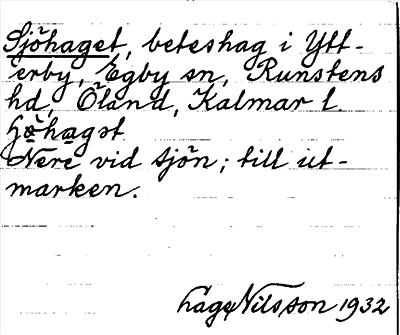 Sjöhaget, beteshag i Ytt-
erby, Egby sn, Runstens
hd, Öland, Kalmar l.
Nere vid sjön; till ut-
marken.
Nilsson 1932